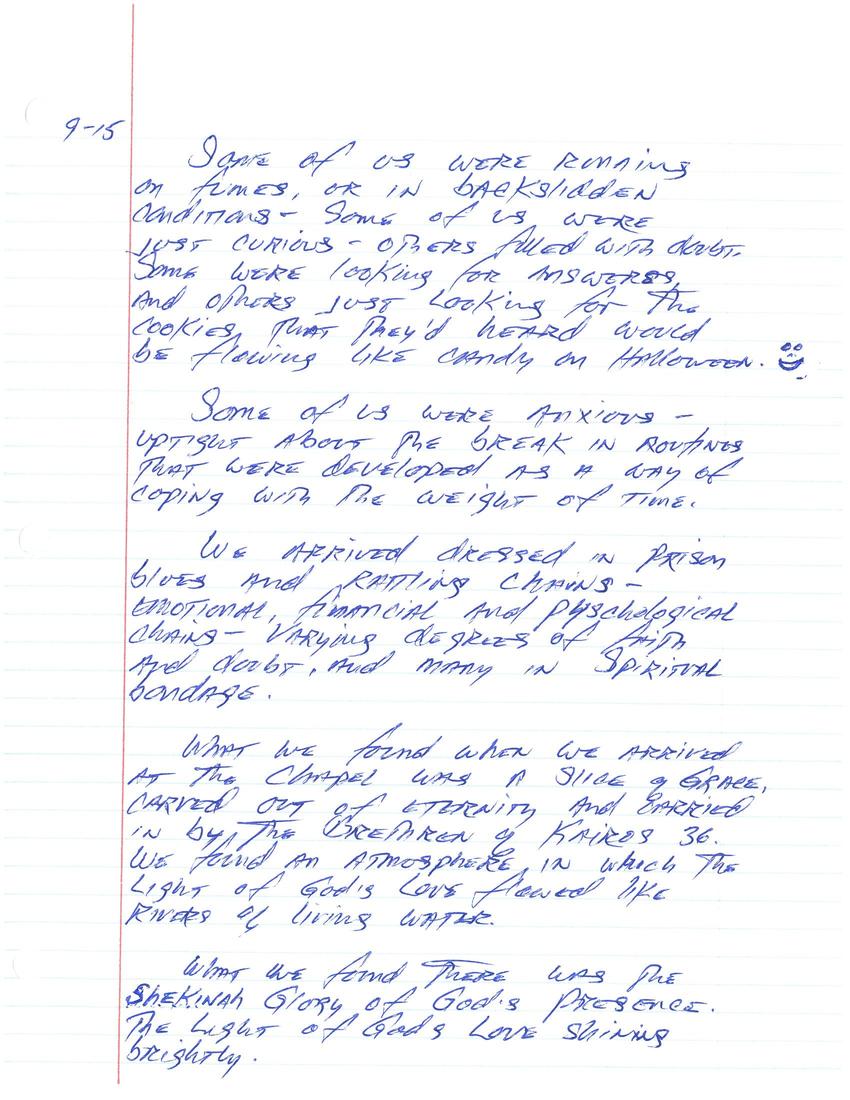 9-15
Some of us were running
on fumes, or in backslidden
conditions - Some of us were
just curious - others filled with doubt.
Some were looking for answeres,
and others just looking for the
cookies that they'd heard would
be flowing like candy on Halloween.
Some of us were anxious -
uptight about the break in routines
that were developed as a way of
coping with the weight of time.
We arrived dressed in prison
blues and rattling chains -
emotional, financial and physchological
chains - varying degrees of faith
and doubt, and many in spiritual
bondage.
What we found when we arrived
at the Chapel was a slice of Grace,
carved out of eternity and carried
in by the Brethren of Kairos 36.
We found an atmosphere in which the
Light of God's Love flowed like
rivers of living water.
What we found there was the
Shekinah Glory of God's Presence.
The Light of God's Love shining
brightly.